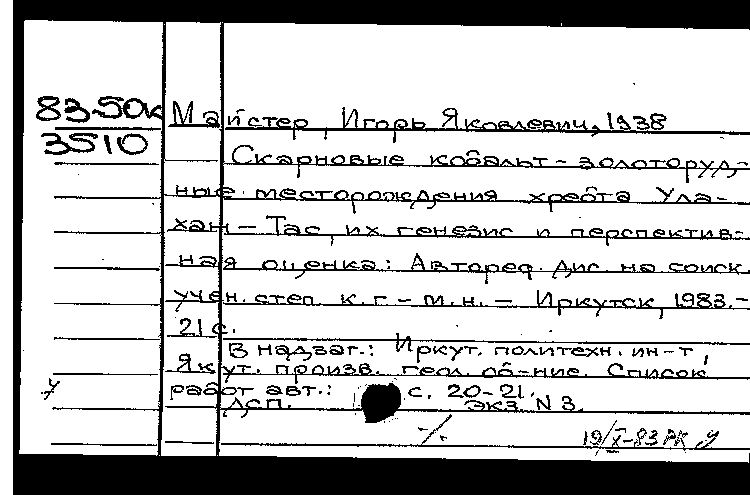 83-50к
3510
Майстер, Игорь Яковлевич, 1938
Скарновые кобальт-золоторуд-
ные месторождения хребта Ула-
хан-Тас, их генезис и перспектив-
ная оценка: Автореф. дис. на соиск.
учен. степ. к. г.-м.н. - Иркутск, 1983.-
21 с.
В надзаг.: Иркут. политехн. ин-т,
Якут. произв. геол. об-ние. Список
работ авт.: с. 20-21.
ДСП. экз. N 3.
19/X-83 РК